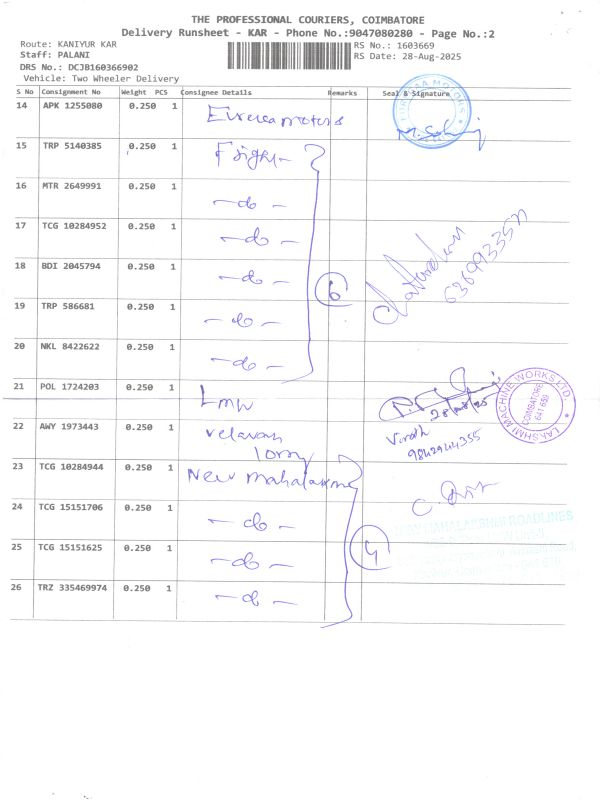 THE PROFESSIONAL COURIERS, COIMBATORE
Delivery Runsheet - KAR - Phone No.:9047080280 - Page No.:2
Route: KANIYUR KAR
RS No.: 1603669
Staff: PALANI
RS Date: 28-Aug-2025
DRS No.: DCJB160366902
Vehicle: Two Wheeler Delivery
S No Consignment No Weight PCS Consignee Details Remarks Seal & Signature
14 APK 1255080 0.250 1
15 TRP 5140385 0.250 1
16 MTR 2649991 0.250 1 - do -
17 TCG 10284952 0.250 1 - do -
18 BDI 2045794 0.250 1 - do -
6
19 TRP 586681 0.250 1 - do -
20 NKL 8422622 0.250 1 - do -
21 POL 1724203 0.250 1 LMW
28/08/25
LAKSHMI MACHINE WORKS LTD.
COIMBATORE
641 659
22 AWY 1973443 0.250 1 velavan
lorry
9842944355
23 TCG 10284944 0.250 1 New mahalaxmi
24 TCG 15151706 0.250 1 - do -
MAHALAKSHMI ROADLINES
25 TCG 15151625 0.250 1 - do -
4
26 TRZ 335469974 0.250 1 - do -